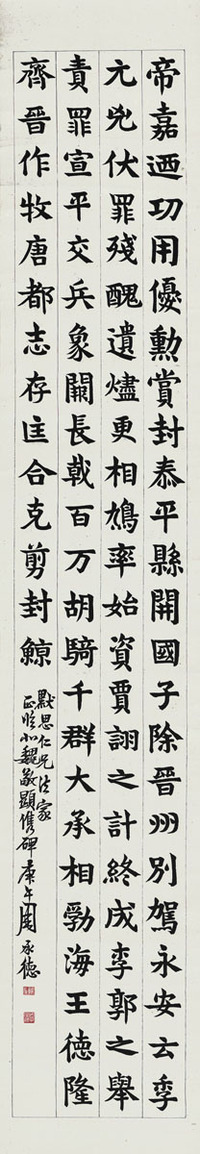 帝嘉迺功用優勳賞封泰平縣開國子除晉州別駕永安之季
元兇伏罪殘醜遺燼更相鳩率始資賈詡之計終成李郭之舉
責罪宣平交兵象闕長戟百万胡騎千群大丞相勃海王德隆
齊晉作牧唐都志存匡合克剪封鯨
默思仁兄法家
正臨北魏敬顯儁碑庚午周承德